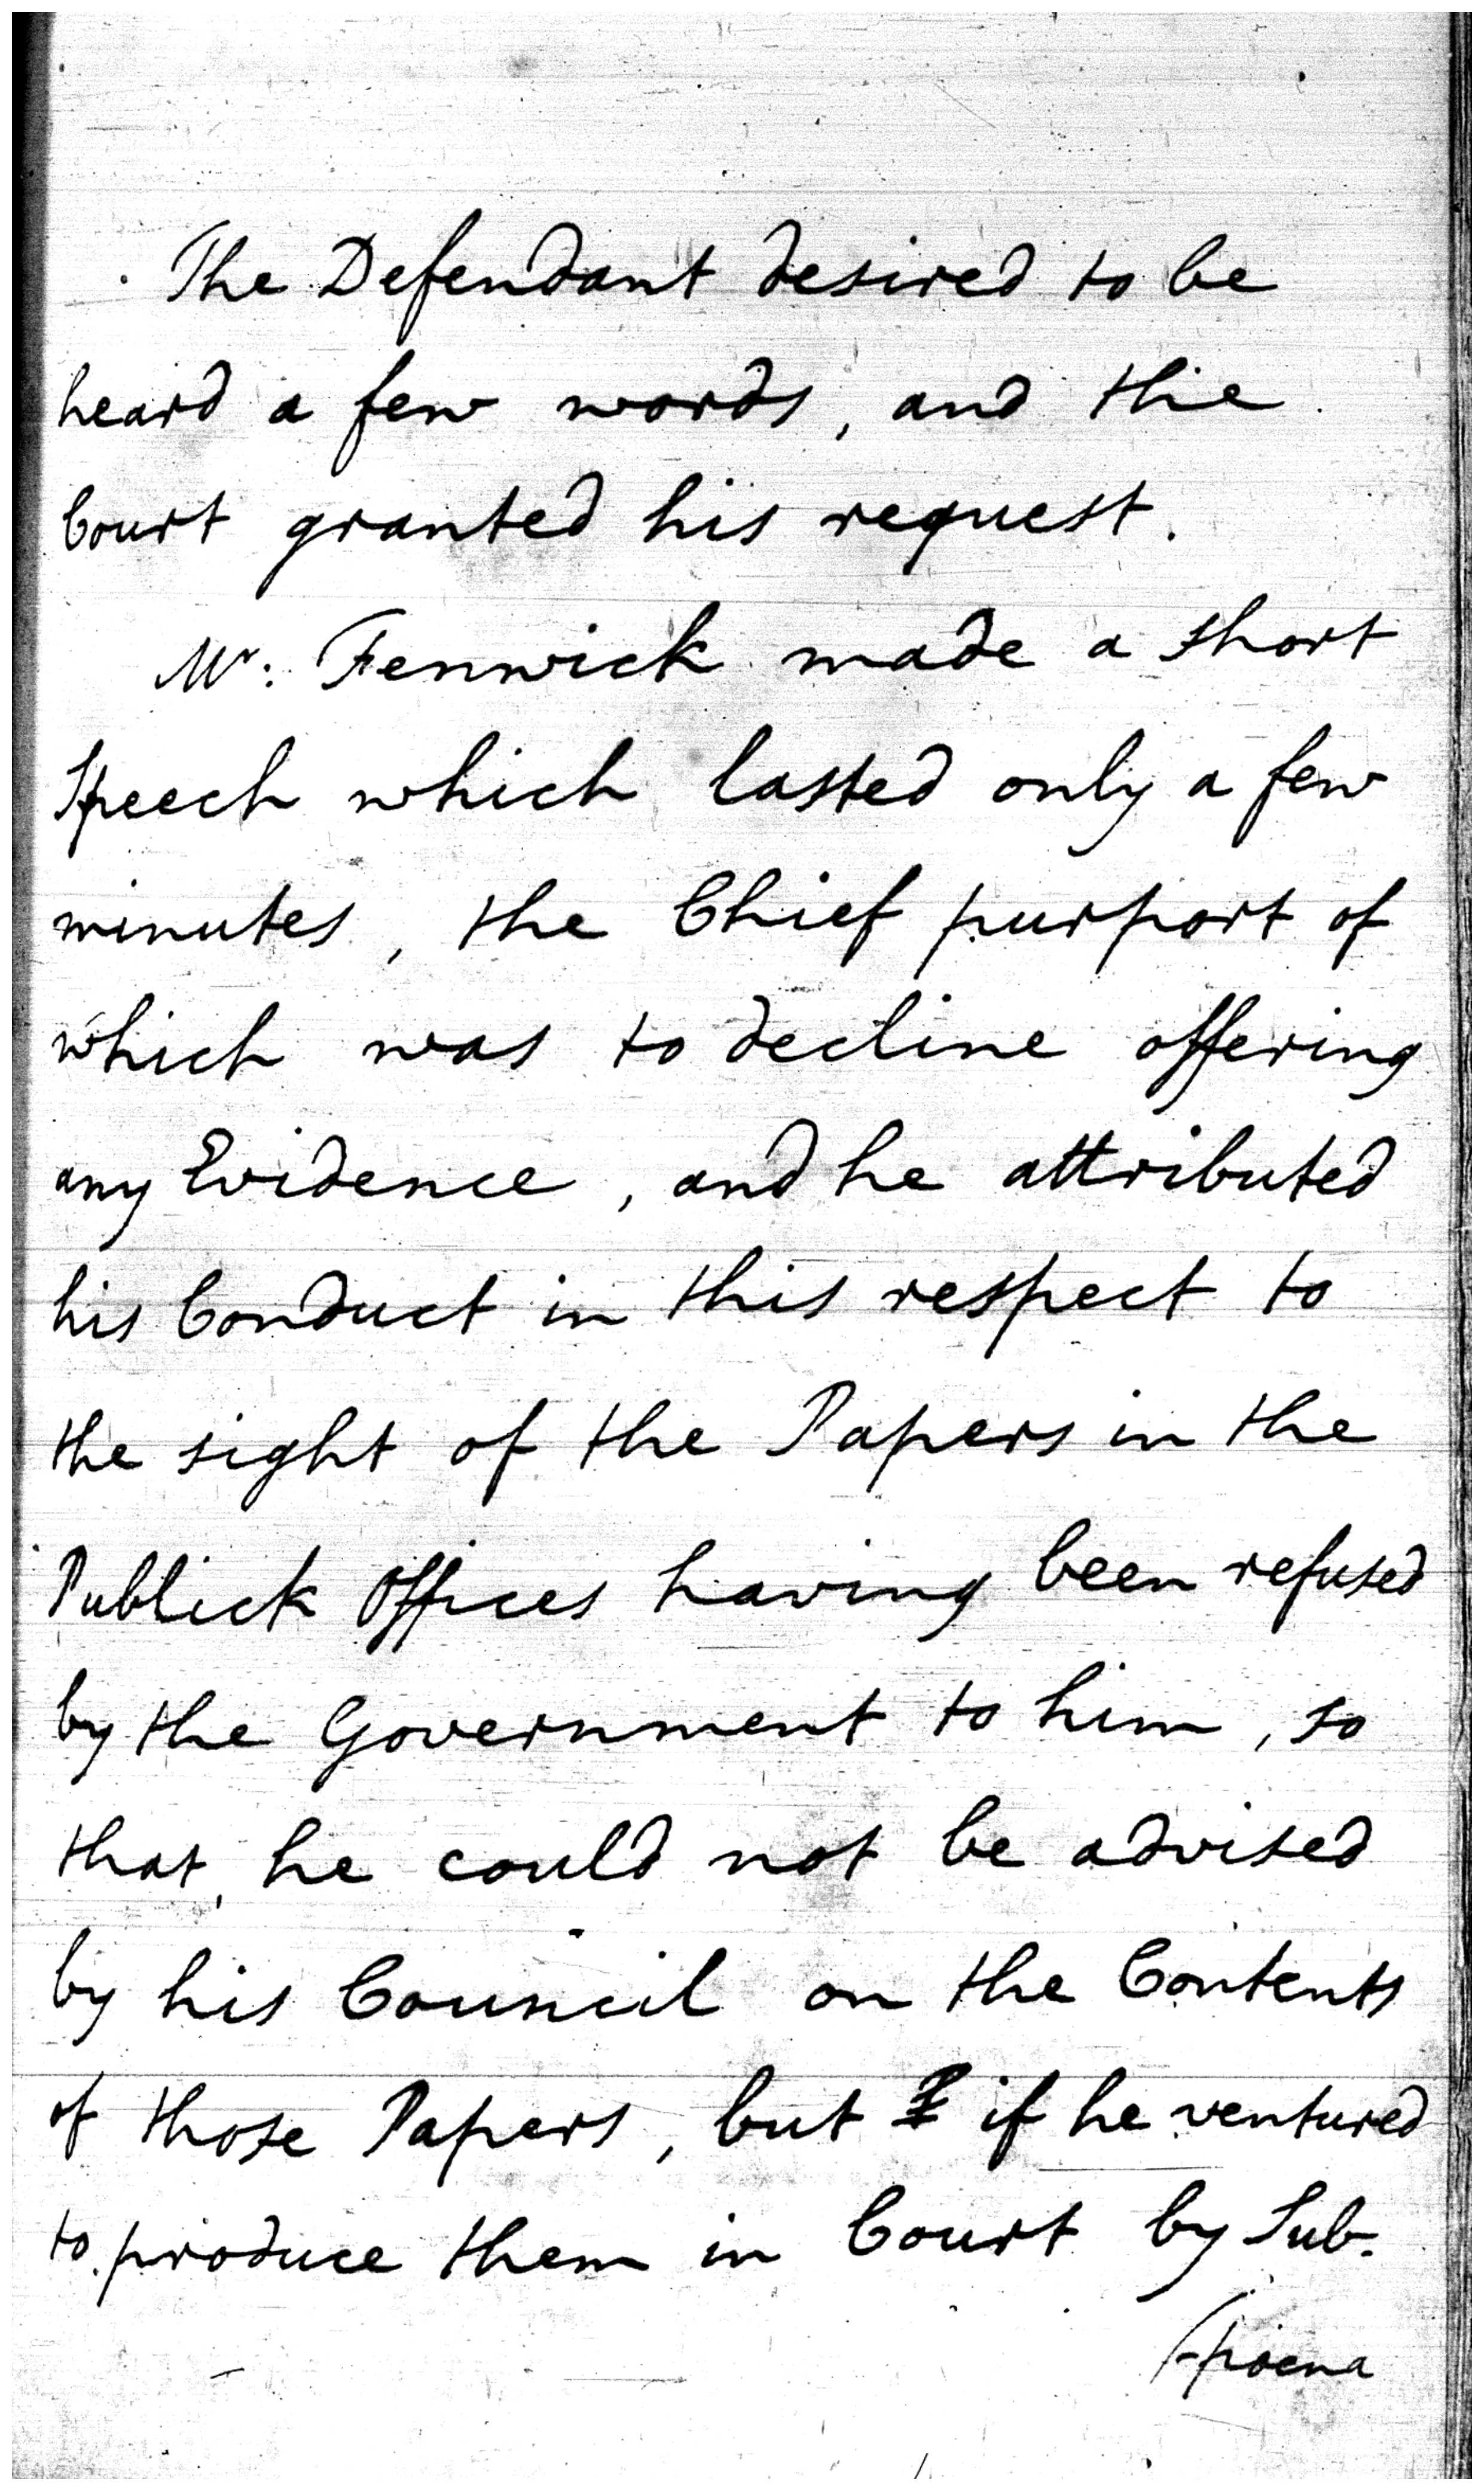 The Defendant desired to be
heard a few words, and the
Court granted his request.
Mr: Fenwick made a short
Speech which lasted only a few
minutes, the Chief purport of
which was to decline offering
any Evidence, and he attributed
his Conduct in this respect to
the sight of the Papers in the
Publick Offices having been refused
by the Government to him, so
that, he could not be advised
by his Council on the Contents
of those Papers, but if he ventured
to produce them in Court by Sub-
-poena